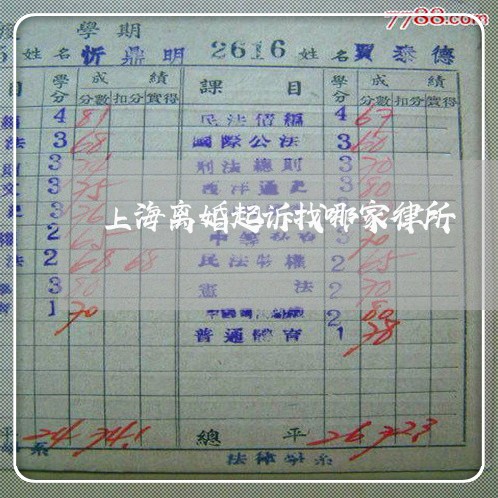 7788.com
學期
姓名 忻鼎明 2616 姓名 賈泰德
目 學分 成績 課目 學分 成績
分數 扣分 實得 分數 扣分 實得
4 81 民法債編 4 67
法 3 68 國際公法 3 60
3 刑法總則 3 70
3 75 西洋通史 3 80
上海离婚起诉找哪家律所
2 3 70
法 2 68 68 民法物權 2 65
3 80 憲法 2 70
1 70 2 80
普通體育 1 78
平 24 74.1 總平 26 72.3
系 法律學系